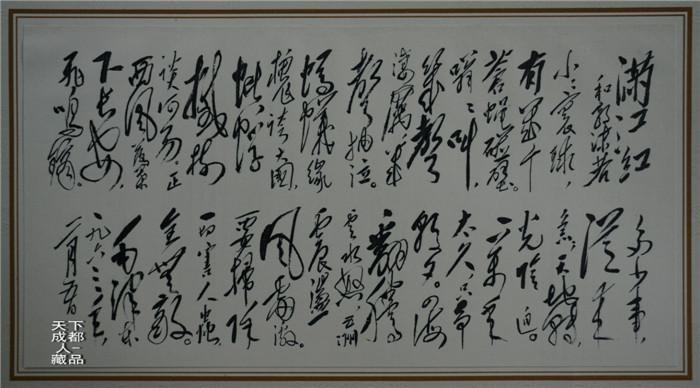 滿江红
和郭沫若
小小寰球，
有幾个
苍蝇碰壁。
嗡嗡叫，
幾声
凄厲幾
声抽泣。
蚂蟻缘
槐誇大国，
蚍蜉
撼树
谈何易。正
西风落葉
下长安，
飛鸣镝。
多少事，
從来
急。天地转，
光阴迫。
一万年
太久，只争
朝夕。四海
翻腾
云水怒，五洲
震蕩
风雷激。
要掃除
一切害人虫，
全無敌。
毛泽东
一九六三年
天下
成都
人一
藏品